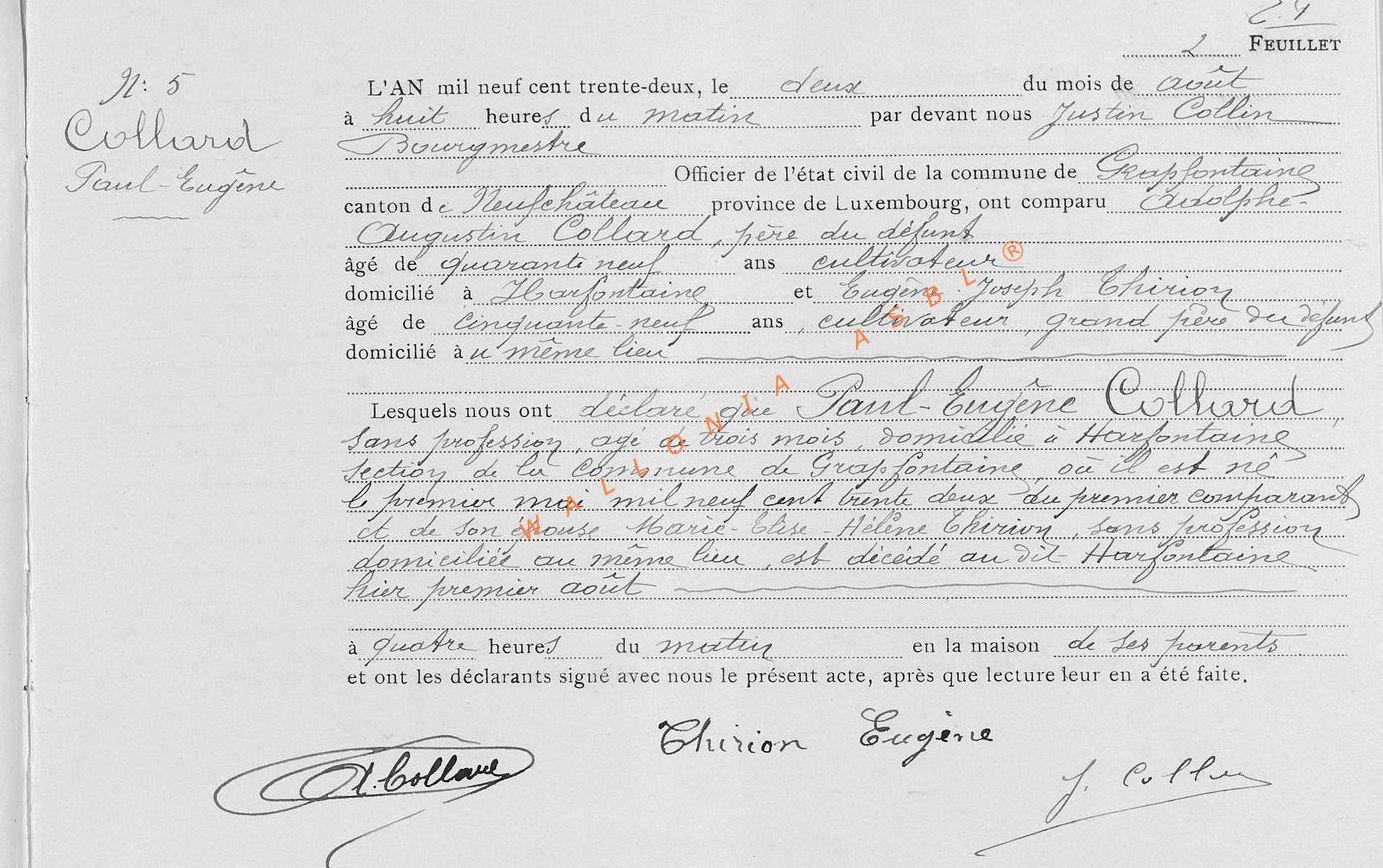 2 FEUILLET
N: 5
Collard
Paul-Eugène
L'AN mil neuf cent trente-deux, le deux du mois de août
à huit heures du matin par devant nous Justin Collin
Bourgmestre
Officier de l'état civil de la commune de Grapfontaine
canton de Neufchâteau province de Luxembourg, ont comparu Adolphe-
Augustin Collard, père du défunt
âgé de quarante neuf ans cultivateur
domicilié à Harfontaine et Eugène-Joseph Thirion
âgé de cinquante-neuf ans, cultivateur, grand père du défunt
domicilié au même lieu
Lesquels nous ont déclaré que Paul-Eugène Collard,
sans profession, agé de trois mois, domicilié à Harfontaine
section de la commune de Grapfontaine, où il est né
le premier mai mil neuf cent trente deux du premier comparant
et de son épouse Marie-Elise-Hélène Thirion, sans profession
domiciliée au même lieu, est décédé au dit Harfontaine
hier premier août
à quatre heures du matin en la maison de ses parents
et ont les déclarants signé avec nous le présent acte, après que lecture leur en a été faite.
Thirion Eugène
A. Collard
J. Collin
WALLONIA ASBL ®